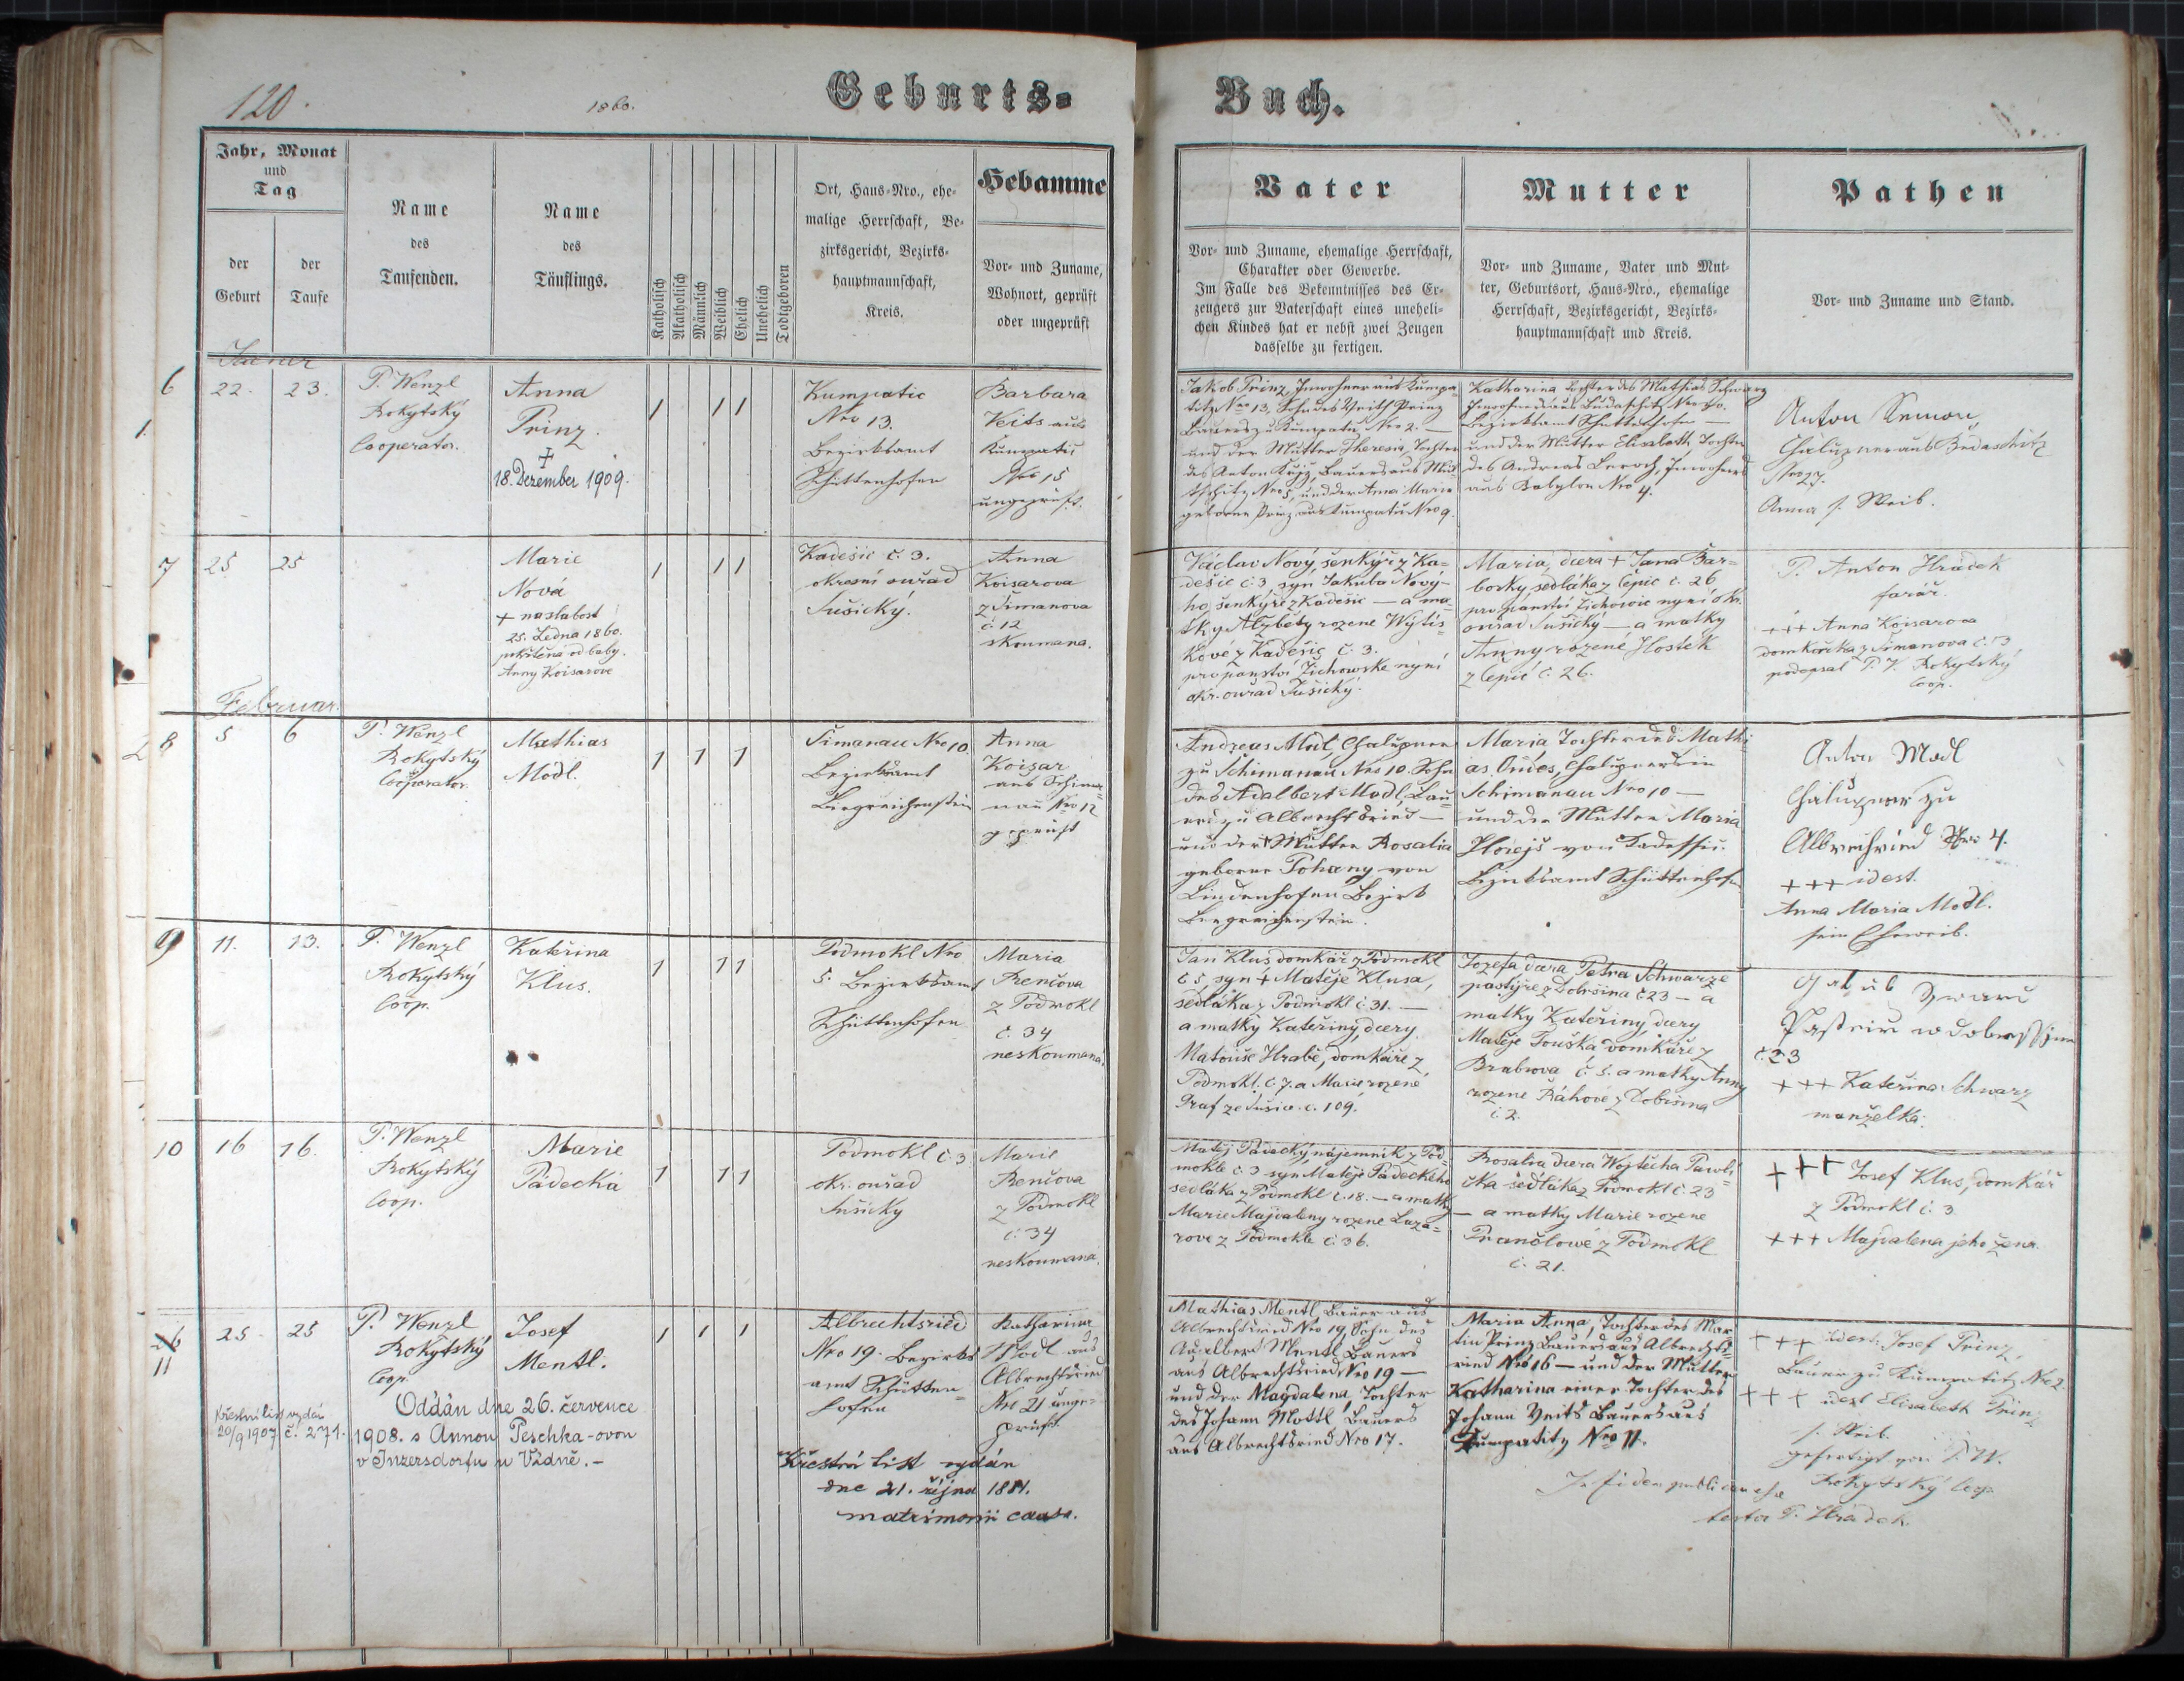 120.
1860.
Geburts=
Buch.
Jahr, Monat
und
Tag
der
Geburt
der
Taufe
Name
des
Taufenden.
Name
des
Täuflings.
Katholisch
Akatholisch
Männlich
Weiblich
Ehelich
Unehelich
Todtgeboren
Ort, Haus=Nro., ehe=
malige Herrschaft, Be=
zirksgericht, Bezirks=
hauptmannschaft,
Kreis.
Hebamme
Vor= und Zuname,
Wohnort, geprüft
oder ungeprüft
Vater
Vor= und Zuname, ehemalige Herrschaft,
Charakter oder Gewerbe.
Im Falle des Bekenntnisses des Er=
zeugers zur Vaterschaft eines uneheli=
chen Kindes hat er nebst zwei Zeugen
dasselbe zu fertigen.
Mutter
Vor= und Zuname, Vater und Mut=
ter, Geburtsort, Haus=Nro., ehemalige
Herrschaft, Bezirksgericht, Bezirks=
hauptmannschaft und Kreis.
Pathen
Vor= und Zuname und Stand.
6
22. 23.
P. Wenzl
Rokytský
Cooperator.
Anna
Prinz.
+
18. Dezember 1909.
1 1 1
Kumpatic
Nro 13.
Bezirksamt
Schüttenhofen
Barbara
Veits aus
Kumpatic
Nro 15
ungeprüft.
Jakob Prinz, Inwohner aus Kumpa=
titz Nro 13, Sohn des Veith Prinz
Bauers zu Kumpatic Nro 2. —
und der Mutter Theresia, Tochter
des Anton
Nro 5, und der Anna Maria
geborne Prinz aus Kumpatic Nro 9.
Katharina Tochter des Mathias Schwarz
Bezirksamt Schüttenhofen —
und der Mutter Elisabeth Tochter
des Andreas Inwohners
aus Babylon Nro 4.
Anton
Chalupner aus
Nro 27.
Anna s. Weib.
7
25 25
Marie
Nová
+ na slabost
25. Ledna 1860.
pokřtěná od baby.
Anny Koisarove
1 1 1
Kadešic č. 3.
okresní ouřad
Sušický.
Anna
Koisarova
z Šimanova
č. 12
skoumana.
Václav Nový, šenkýř z Ka=
dešic č 3, syn Jakuba Nový=
ho, šenkýře z Kadešic — a ma=
tky Alžběty rozene Wýtis=
kove z Kadešic č. 3.
pro panství Žichowske nyní
okr. ouřad Sušický.
Maria, dcera + Jana Bar=
borky, sedláka z Čepic č. 26
pro panství Žichowic nyní okr.
ouřad Sušický — a matky
Anny rozené Hosték
z Čepic č. 26.
P. Anton Hrádek
farář.
+++ Anna Koisarova
domkařka z Šimanova č. 13
podepsal P. V. Rokytský
Coop.
Februar.
8
5 6
P. Wenzl
Rokytský
Cooperator
Mathias
Modl.
1 1 1
Simanau Nro 10
Bezirksamt
Bergreichenstein
Anna
Koisar
aus Schima=
nau Nro 12
geprüft
Andreas Modl, Chalupner
zu Schimanau Nro 10. Sohn
des Adalbert Modl, Bau=
ers zu Albrechtsried —
und der Mutter Rosalia
geborne Pohany von
Lindenhofen Bezirk
Bergreichenstein.
Maria, Tochter des Mathi
as Chalupners in
Schimanau Nro 10 —
und der Mutter Maria
Horejš von
Bezirksamt Schüttenhofen
Anton Modl
Chalupner zu
Albrechtsried Nro 4.
+++ idest.
Anna Maria Modl.
sein Eheweib.
9
11. 13.
P. Wenzl
Rokytský
Coop.
Kateřina
Klus.
1 1 1
Podmokl Nro
5. Bezirksamt
Schüttenhofen
Maria
Renčova
z Podmokl
č. 34
neskoumaná.
Jan Klus domkář z Podmokl
č 5, syn + Matěje Klusa,
sedláka z Podmokl č 31. —
a matky Kateřiny, dcery
Matouše Hrabě, domkáře z
Podmokl č. 7. a Marie rozené
Praf ze Sušice. č. 109.
Jozefa dcera Petra Schwarze
pastýře z Dobršina č 23 — a
matky Kateřiny, dcery
Matěje Touška domkáře z
Brabsova č. 5. a matky Anny
rozene Báhové z Dobršina
č. 2.
č. 23
+++ Kateřina Schwarz
manželka.
10
16 16.
P. Wenzl
Rokytský
Coop.
Marie
Pádecká
1 1 1
Podmokl č 3
okr. ouřad
Sušicky
Marie
Renčova
z Podmokl
č. 34
neskoumaná.
Matěj Pádecký nájemník z Pod=
mokle č 3 syn Matěje Pádeckého
sedláka z Podmokl č. 18. — a matky
Marie Majdaleny rozene Laza=
rove z Podmokle č. 36.
Rosalia dcera Wojtěcha Pawli
čka sedláka z Podmokl č. 23
— a matky Marie rozene
z Podmokl
č. 21.
+++ Josef Klus, domkář
z Podmokl č. 3
+++ Majdalena jeho žena.
11
25 25
P. Wenzl
Rokytský
Coop.
Josef
Mentl.
1 1 1
Albrechtsried
Nro 19. Bezirks
amt Schütten=
hofen
Katharina
Modl aus
Albrechtsried
Nro 21 unge=
prüft
Mathias Mentl, Bauer aus
Albrechtsried Nro 19, Sohn des
Adalbert Mentl Bauers
aus Albrechtsried Nro 19 —
und der Magdalena, Tochter
des Johann Mottl, Bauers
aus Albrechtsried Nro 17.
Maria Anna, Tochter des Mar
tin Prinz Bauers aus Albrechts=
ried Nro 16 — und der Mutter
Katharina einer Tochter des
Johann Veits Bauers aus
Kumpatitz Nro 11.
+++ idest: Josef Prinz,
Bauer zu Kumpatitz Nro 2.
+++ idest Elisabeth Prinz
s. Weib.
gefertigt von P. W.
Rokytský Coop.
Křestní list vydán
20/9 1907 č. 271.
Oddán dne 26. července
1908. s Annou Peschka-ovou
v Inzersdorfu u Vídně. –
Křestní list vydán
dne 21. října 1881.
matrimonii causa.
testor P. Hrádek.